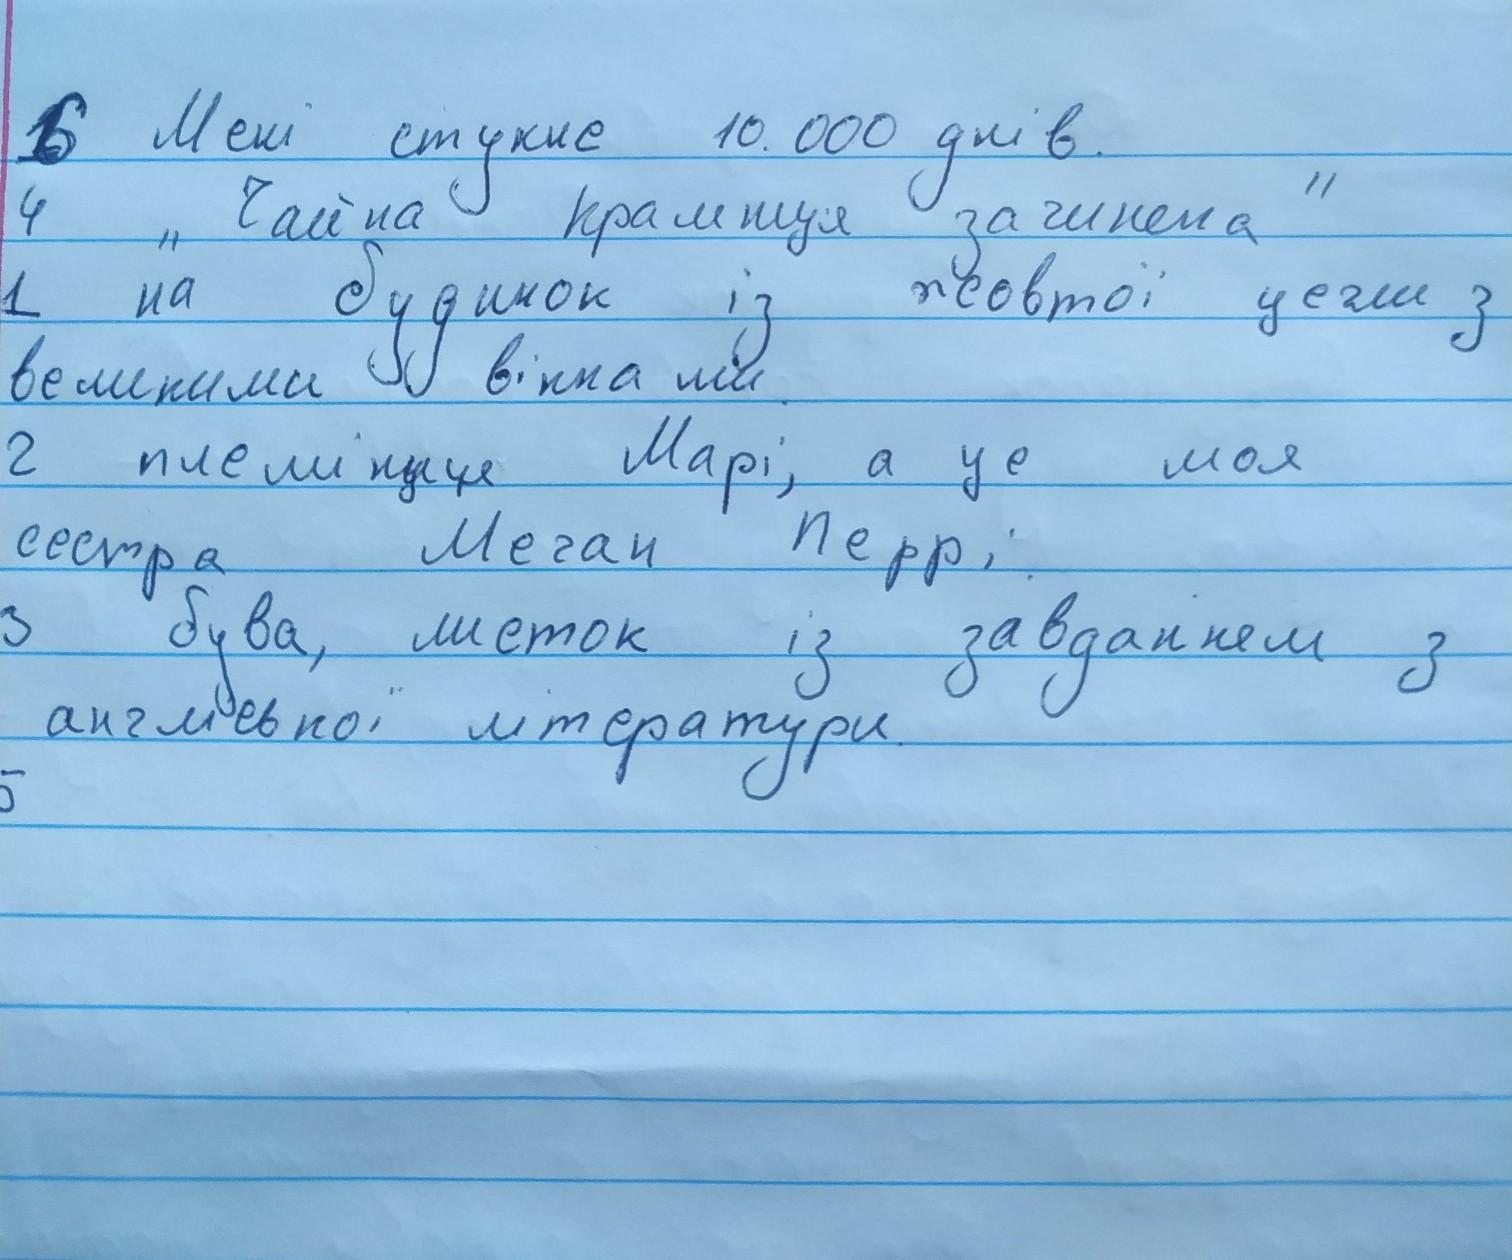 6 Мені стукне 10.000 днів.
4 „Чайна крамниця зачинена"
1 на будинок із жовтої цегли з
великими вікнами.
2 племінниця Марі, а це моя
сестра Меган Перрі.
3 бува, листок із завданнем з
англієької літератури.
5